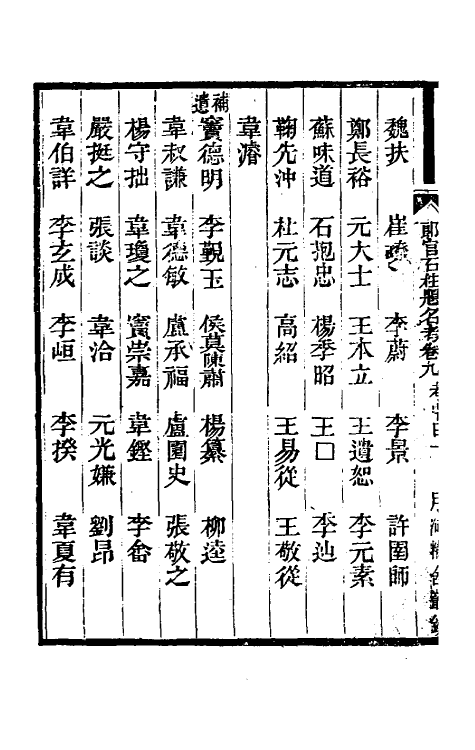 郎官石柱題名考卷九
魏扶 崔 李蔚 李景 許圉師
鄭長裕 元大士 王本立 王遺恕 李元素
蘇味道 石抱忠 楊季昭 王口 李迪
鞠先沖 杜元志 高紹 王易從 王敬從
韋濬
補遺 竇德明 李覲玉 侯莫陳肅 楊纂 柳逵
韋叔謙 韋德敏 盧承福 盧園史 張敬之
楊守拙 韋瓊之 竇崇嘉 韋鏗 李畬
嚴挺之 張談 韋洽 元光嫌 劉昂
韋伯詳 李玄成 李峘 李揆 韋夏有